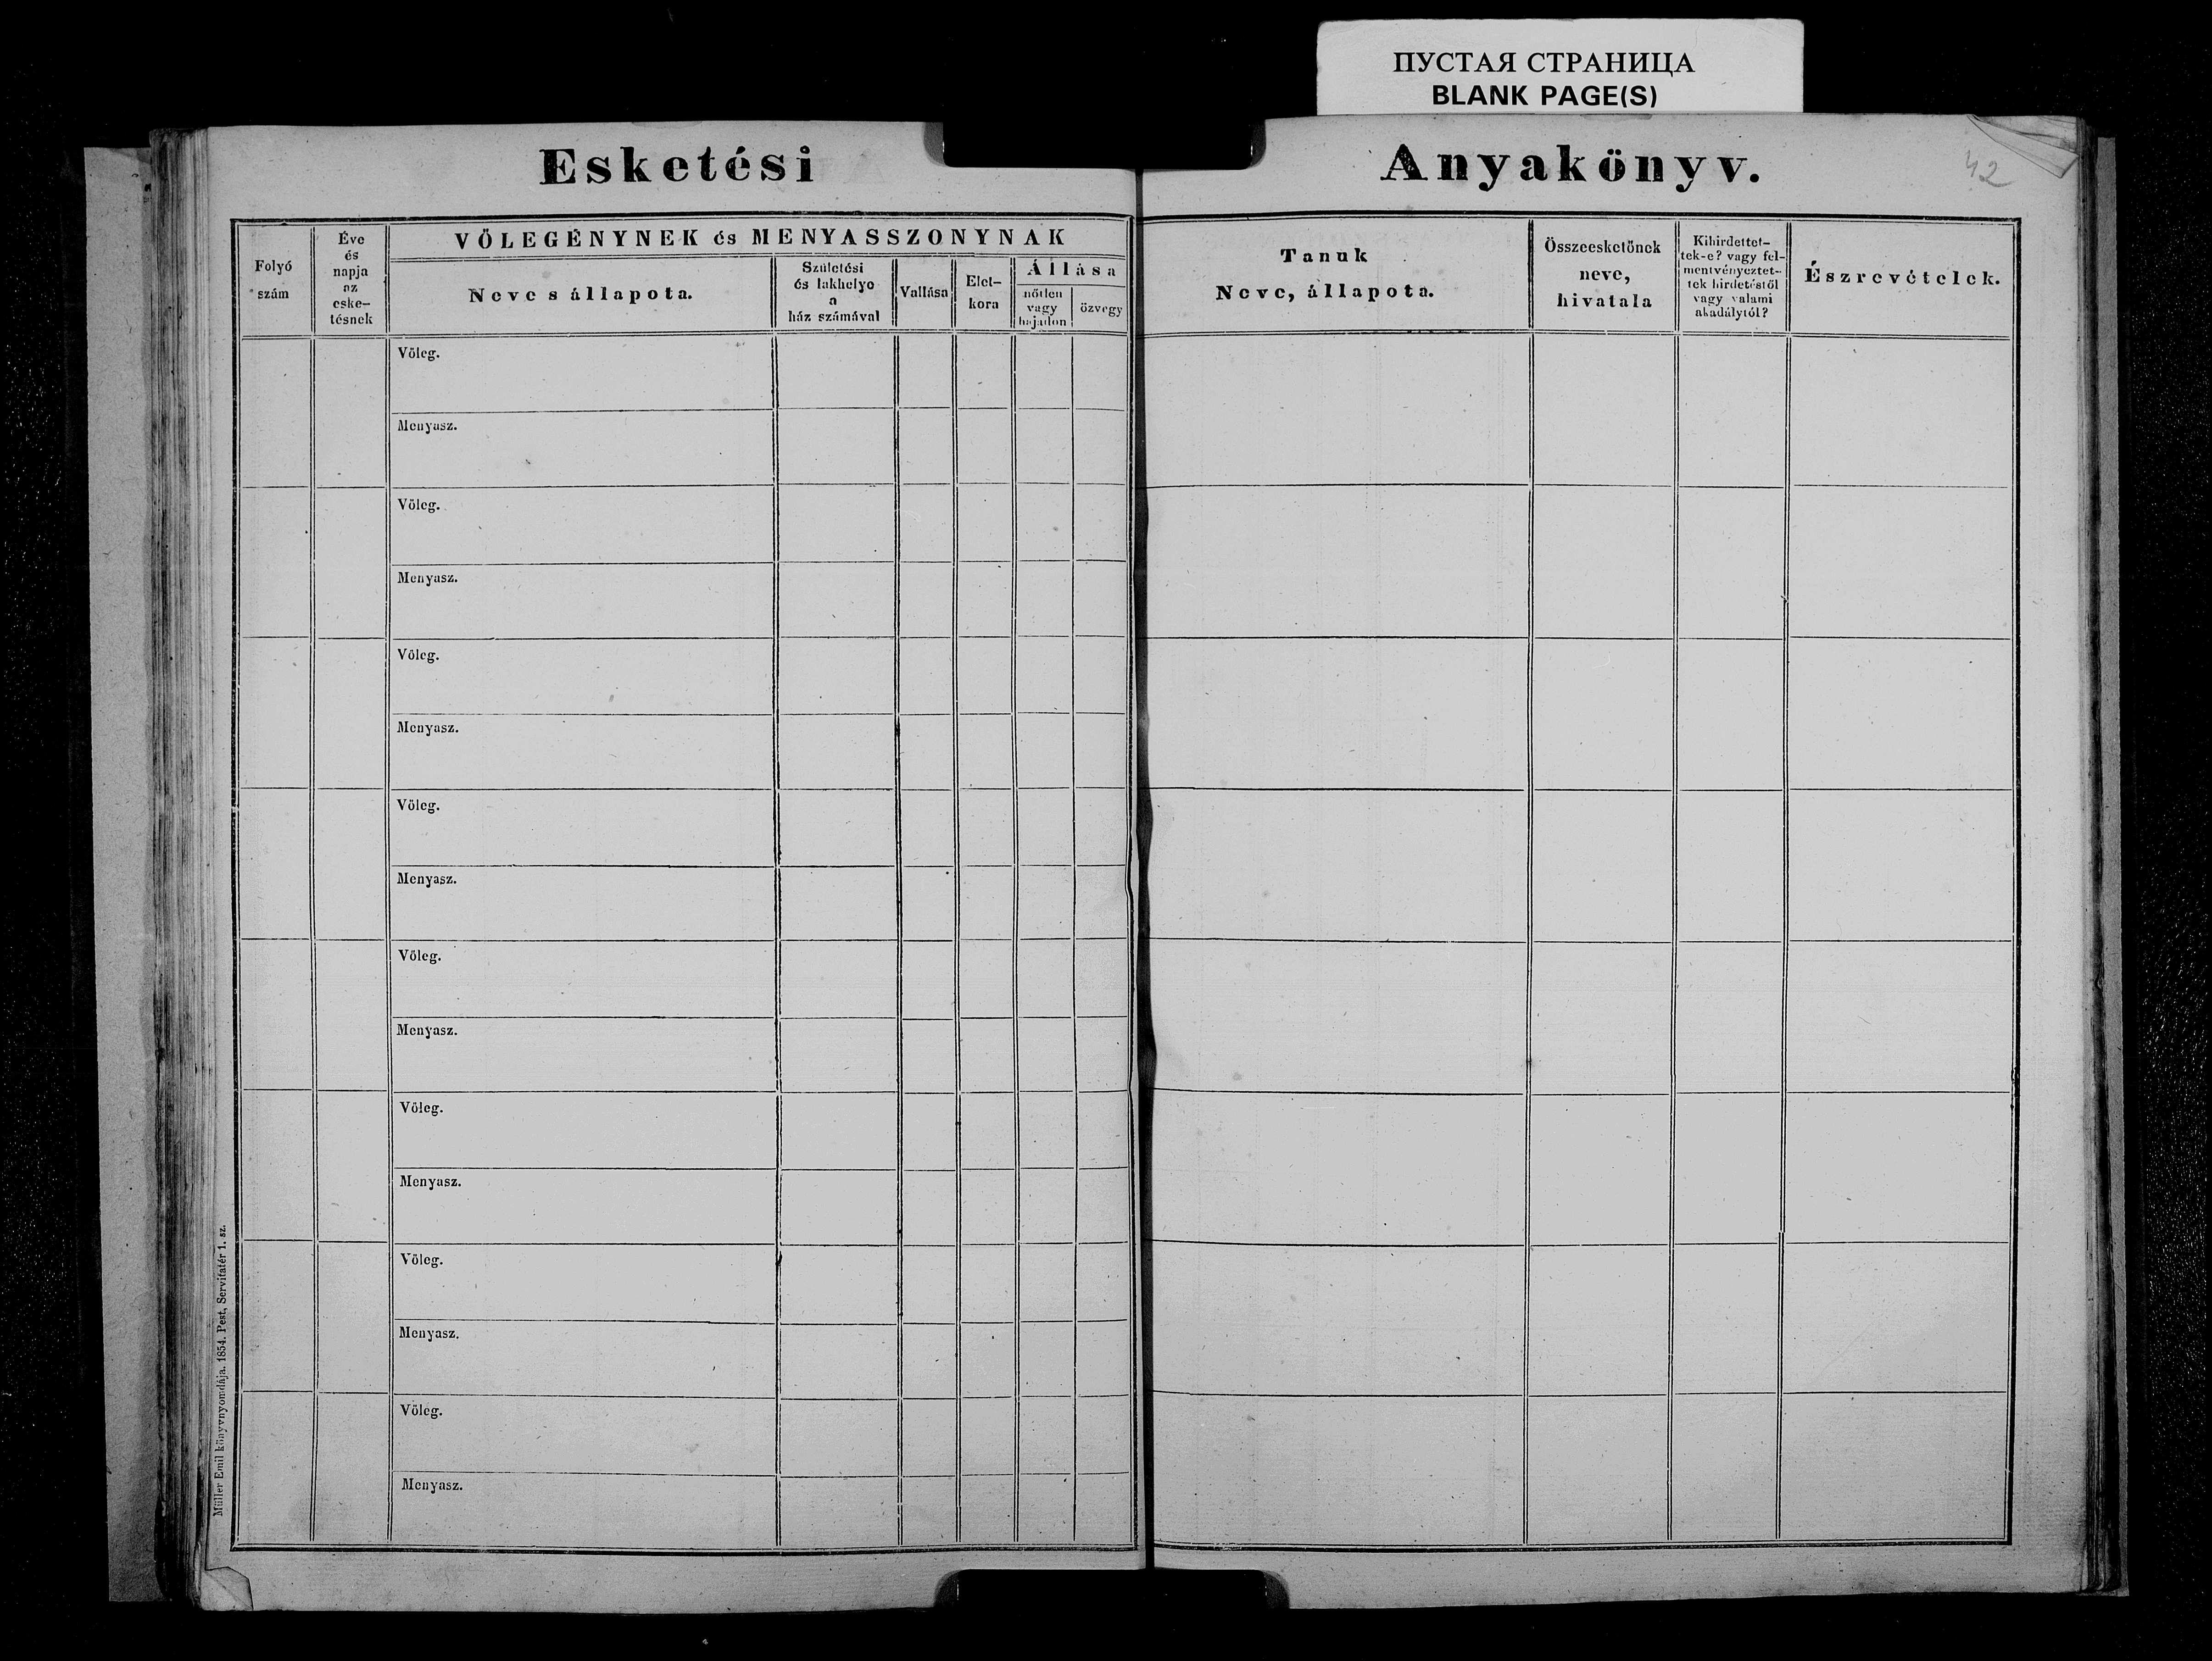 ПУСТАЯ СТРАНИЦА
BLANK PAGE(S)
Esketési Anyakönyv.
42
Folyó
szám
Éve
és
napja
az
eske-
tésnek
VŐLEGÉNYNEK és MENYASSZONYNAK
Neve s állapota.
Születési
és lakhelye
a
ház számával
Vallása
Élet-
kora
Állása
nőtlen
vagy
hajadon
özvegy
Tanuk
Neve, állapota.
Összeesketőnek
neve,
hivatala
Kihirdettet-
tek-e? vagy fel-
mentvényeztet-
tek hirdetéstől
vagy valami
akadálytól?
Észrevételek.
Völeg.
Menyasz.
Völeg.
Menyasz.
Völeg.
Menyasz.
Völeg.
Menyasz.
Völeg.
Menyasz.
Völeg.
Menyasz.
Völeg.
Menyasz.
Völeg.
Menyasz.
Müller Emil könyvnyomdája. 1854. Pest, Servitatér 1. sz.